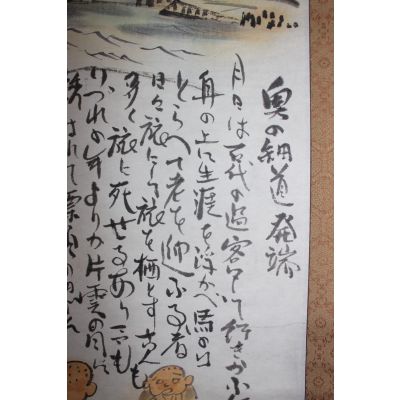 奥の細道 発端
月日は百代の過客にして行きかふ
舟の上に生涯を浮かべ馬の口
とらへて老を迎ふる者
日々旅にして旅を栖とす古人も
多く旅に死せるあり予も
いづれの年よりか片雲の風に